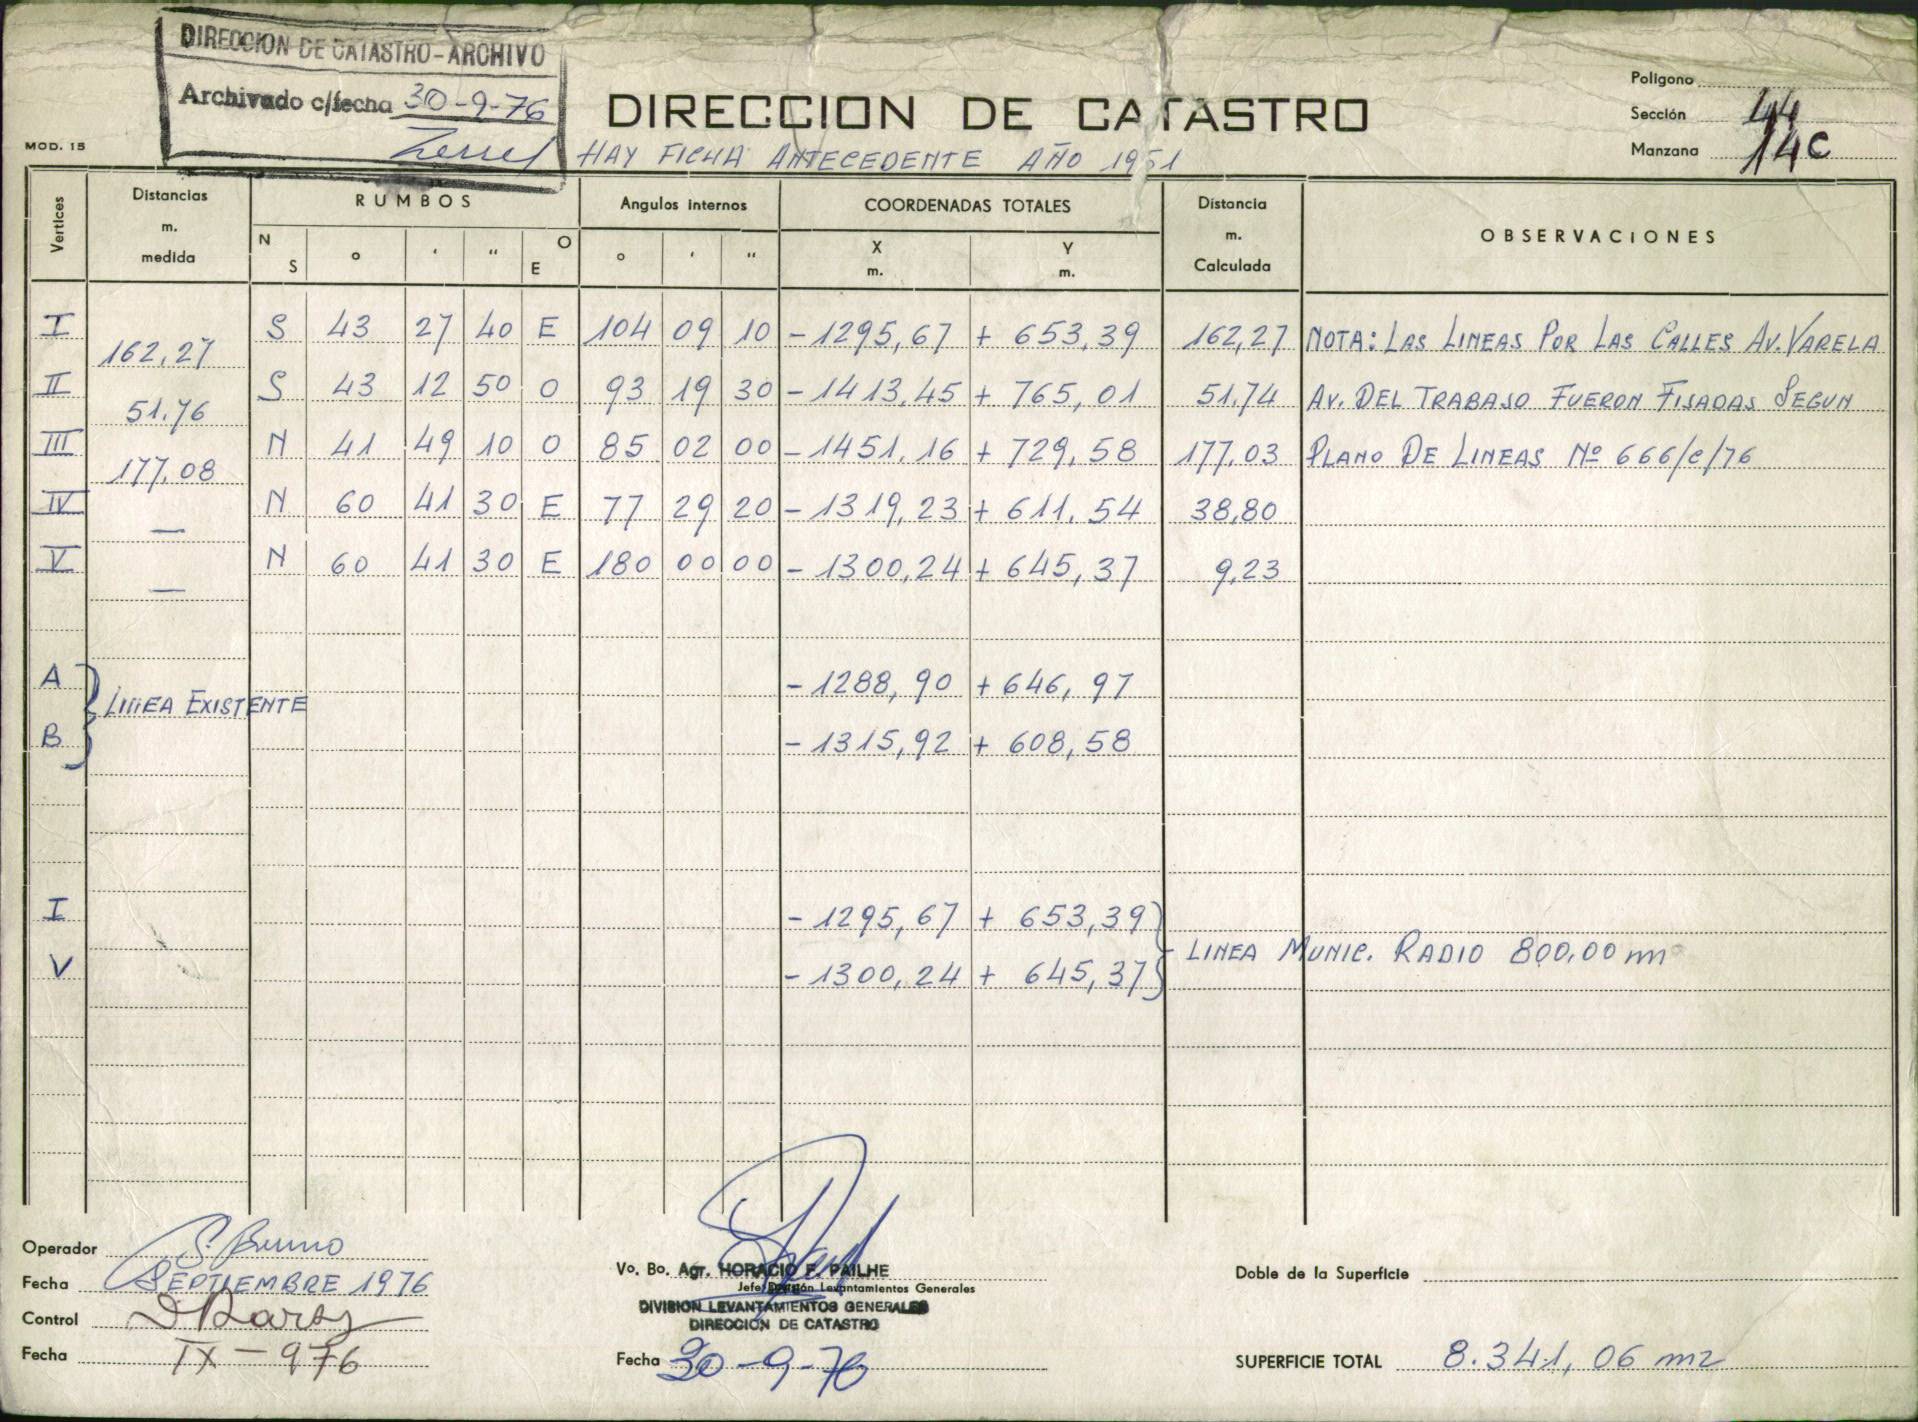 DIRECCION DE CATASTRO-ARCHIVO
Archivado c/fecha 30-9-76
DIRECCION DE CATASTRO
HAY FICHA ANTECEDENTE AÑO 1951
MOD. 15
Polígono
Sección 44
Manzana 14C
Vertices
Distancias m. medida
RUMBOS
N S ° ' " O E
Angulos internos
° ' "
COORDENADAS TOTALES
X m. Y m.
Distancia m. Calculada
OBSERVACIONES
I S 43 27 40 E 104 09 10 -1295,67 + 653,39 162,27 NOTA: LAS LINEAS POR LAS CALLES AV. VARELA
162,27
II S 43 12 50 O 93 19 30 -1413,45 + 765,01 51,74 AV. DEL TRABAJO FUERON FIJADAS SEGUN
51,76
III N 41 49 10 O 85 02 00 -1451,16 + 729,58 177,03 PLANO DE LINEAS Nº 666/C/76
177,08
IV N 60 41 30 E 77 29 20 -1319,23 + 611,54 38,80
—
V N 60 41 30 E 180 00 00 -1300,24 + 645,37 9,23
—
A -1288,90 +646,97
LINEA EXISTENTE
B -1315,92 + 608,58
I -1295,67 + 653,39
LINEA MUNIC. RADIO 800,00 m
V -1300,24 + 645,37
Operador S. Bruno
Fecha SEPTIEMBRE 1976
Control
Fecha IX-976
Vo. Bo. Agr. HORACIO F. PAILHE
Jefe División Levantamientos Generales
DIVISION LEVANTAMIENTOS GENERALES
DIRECCION DE CATASTRO
Fecha 30-9-76
Doble de la Superficie
SUPERFICIE TOTAL 8.341,06 m2